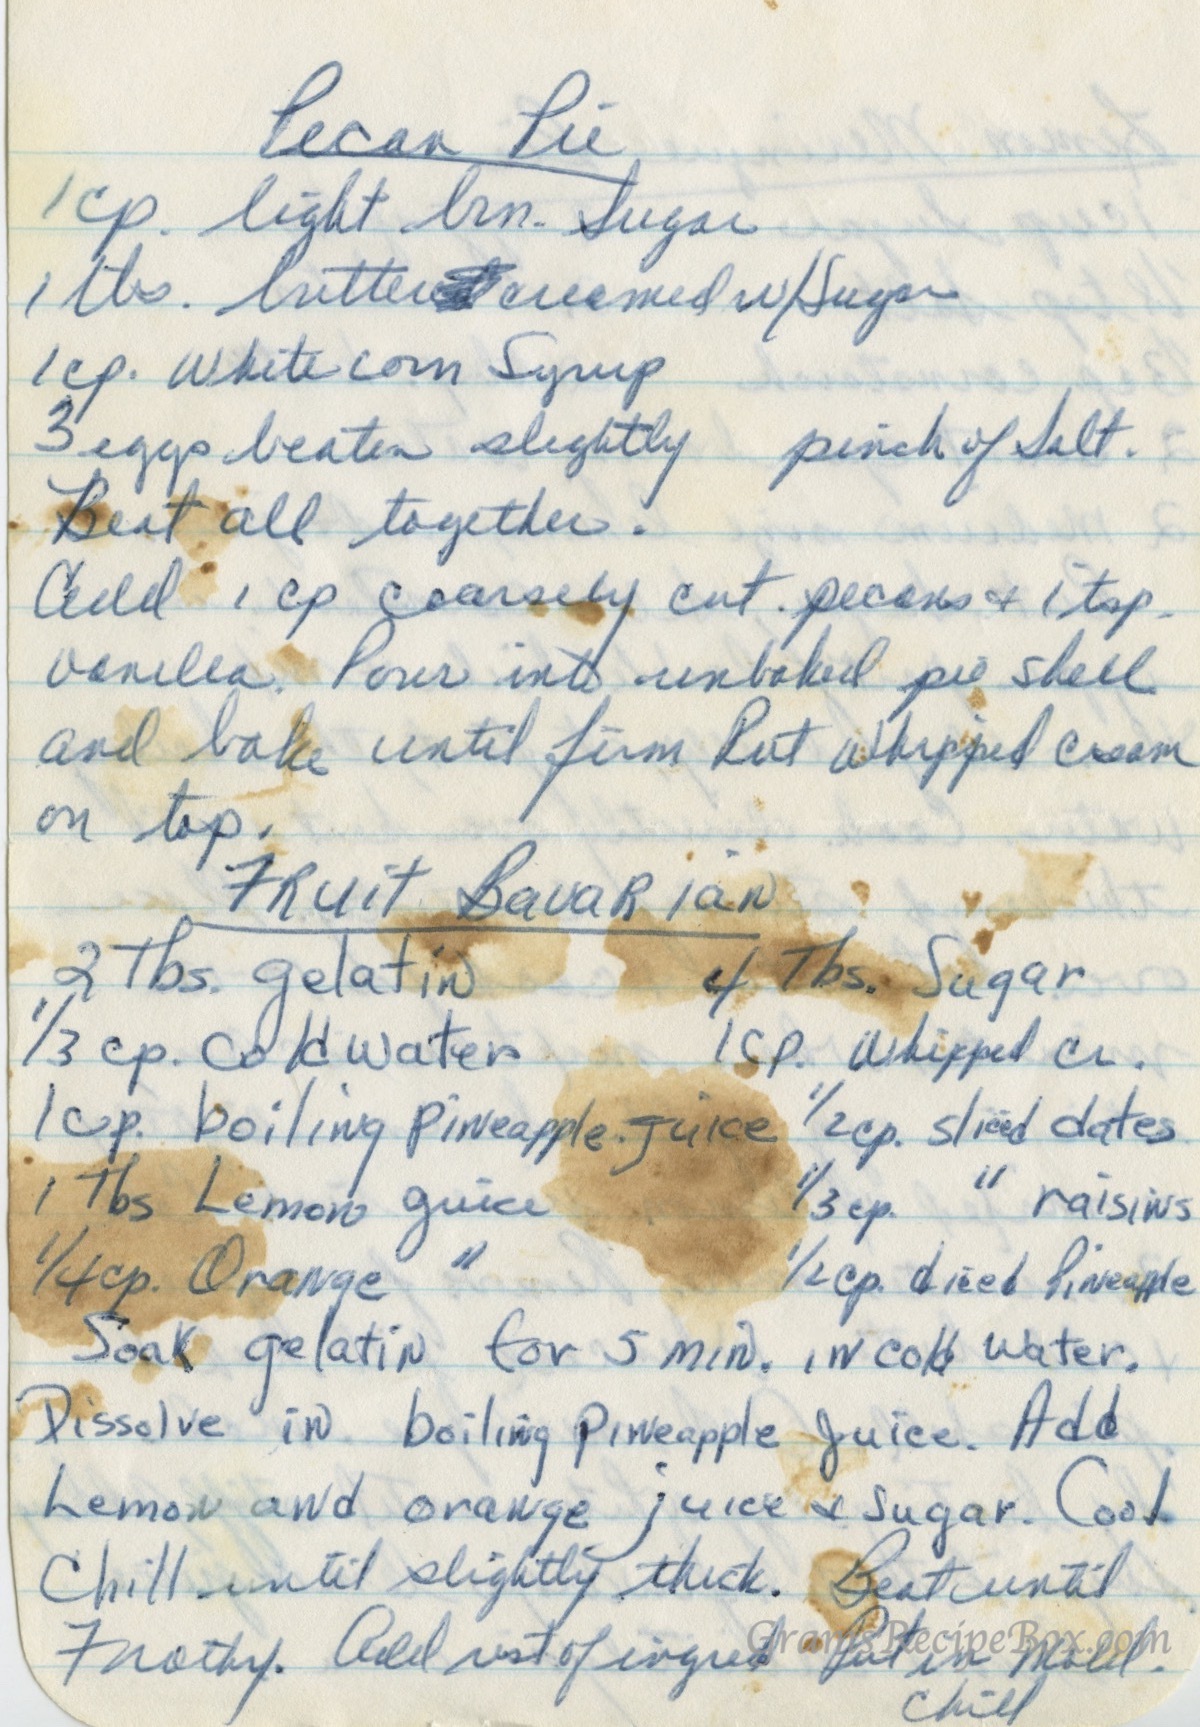 Pecan Pie
1 cp. light brn. Sugar
1 tbs. butter creamed w/Sugar
1 cp. white corn Syrup
3 eggs beaten slightly pinch of Salt.
Beat all together.
Add 1 cp coarsely cut pecans & 1 tsp.
vanilla. Pour into unbaked pie shell
and bake until firm Put whipped cream
on top.
FRUIT BavaRian
2 Tbs. gelatin 4 Tbs. Sugar
1/3 cp. Cold water 1 cp. whipped cr.
1 cup. boiling Pineapple juice 1/2 cp. sliced dates
1 Tbs Lemon juice 1/3 cp. " raisins
1/4 cp. Orange " 1/2 cp. diced Pineapple
Soak gelatin for 5 min. in cold water.
Dissolve in boiling Pineapple juice. Add
Lemon and orange juice & sugar. Cool
Chill until slightly thick. Beat until
Frothy. Add rest of ingred Put in Mold.
Chill
GramsRecipeBox.com